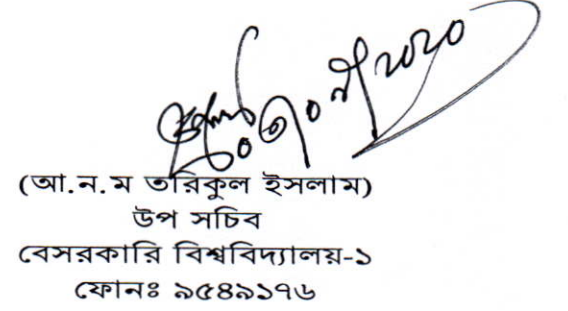 (আ.ন.ম তরিকুল ইসলাম)
উপ সচিব
বেসরকারি বিশ্ববিদ্যালয়-১
ফোনঃ ৯৫৪৯১৭৬